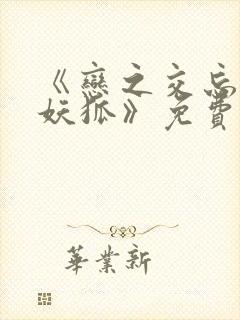 《戀之交忘
妖狐》免費
華業新